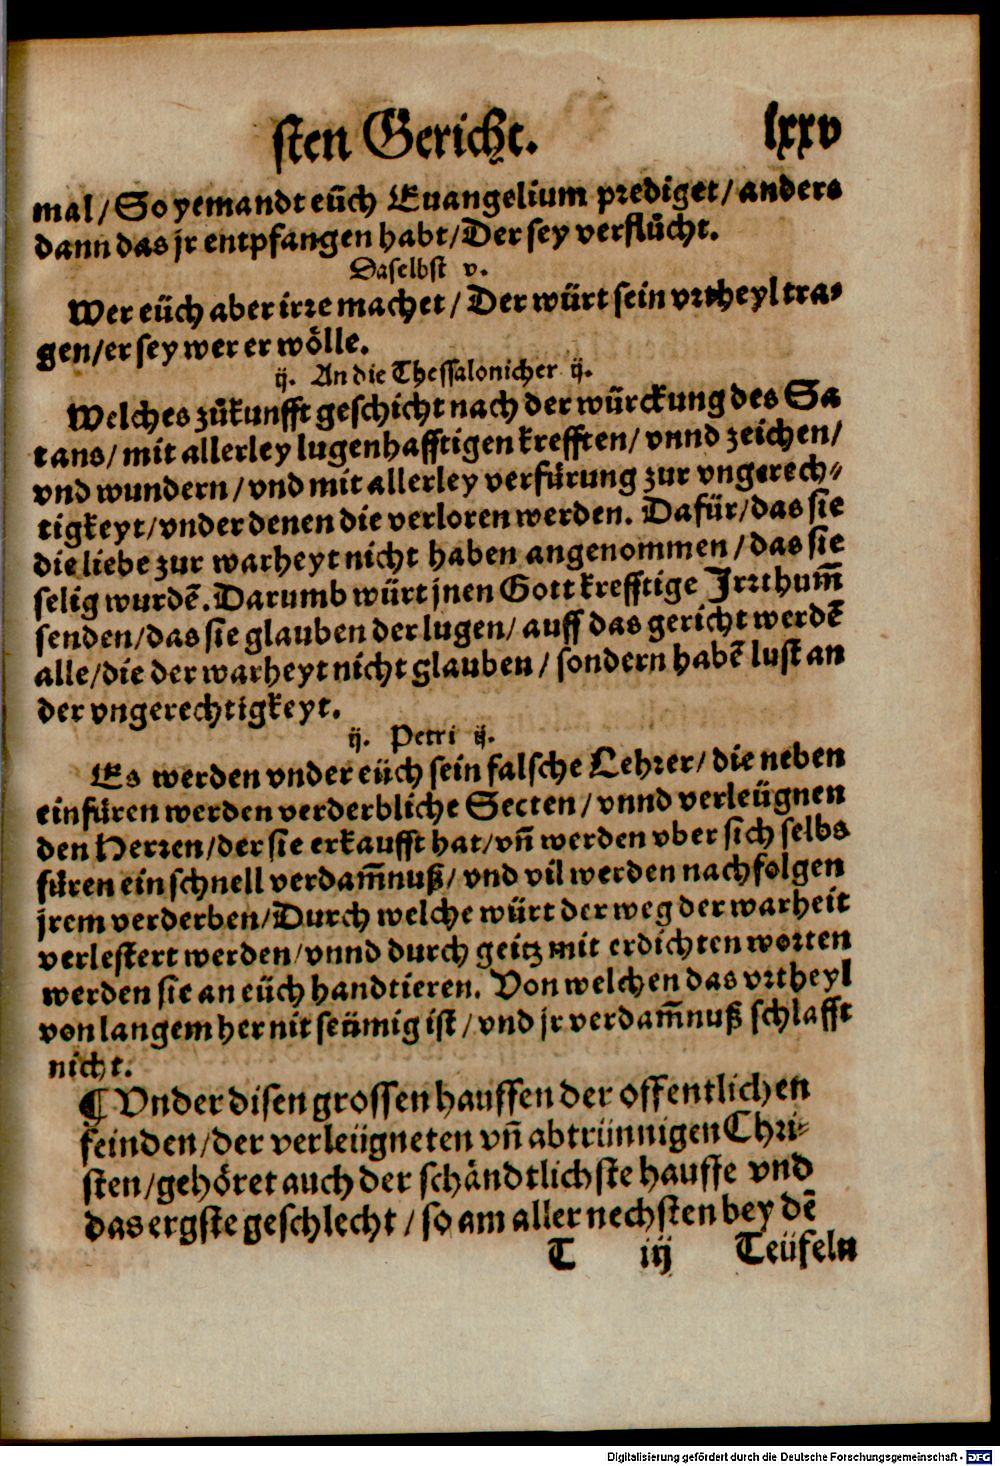 sten Gericht. lxxv
mal/ So yemandt eüch Euangelium prediget/ anders
dann das jr entpfangen habt/ Der sey verflůcht.
Daselbst v.
Wer eüch aber irre machet/ Der würt sein vrtheyl tra-
gen/ er sey wer er wölle.
ij. An die Thessalonicher ij.
Welches zůkunfft geschicht nach der würckung des Sa
tans/ mit allerley lugenhafftigen krefften/ vnnd zeichen/
vnd wundern/ vnd mit allerley verfürung zur vngerech-
tigkeyt/ vnder denen die verloren werden. Dafür/ das sie
die liebe zur warheyt nicht haben angenommen/ das sie
selig wurdē. Darumb würt jnen Gott krefftige Jrrthum̄
senden/ das sie glauben der lugen/ auff das gericht werdē
alle/ die der warheyt nicht glauben/ sondern habē lust an
der vngerechtigkeyt.
ij. Petri ij.
Es werden vnder eüch sein falsche Lehrer/ die neben
einfüren werden verderbliche Secten/ vnnd verleügnen
den Herren/ der sie erkaufft hat/ vn̄ werden vber sich selbs
füren ein schnell verdam̄nuß/ vnd vil werden nachfolgen
jrem verderben/ Durch welche würt der weg der warheit
verlestert werden/ vnnd durch geitz mit erdichten worten
werden sie an eüch handtieren. Von welchen das vrtheyl
von langem her nit seümig ist/ vnd jr verdam̄nuß schlafft
nicht.
¶ Vnder disen grossen hauffen der offentlichen
feinden/ der verleügneten vn̄ abtrünnigen Chri-
sten/ gehöret auch der schändtlichste hauffe vnd
das ergste geschlecht/ so am aller nechsten bey dē
T iij Teüfeln
Digitalisierung gefördert durch die Deutsche Forschungsgemeinschaft - DFG